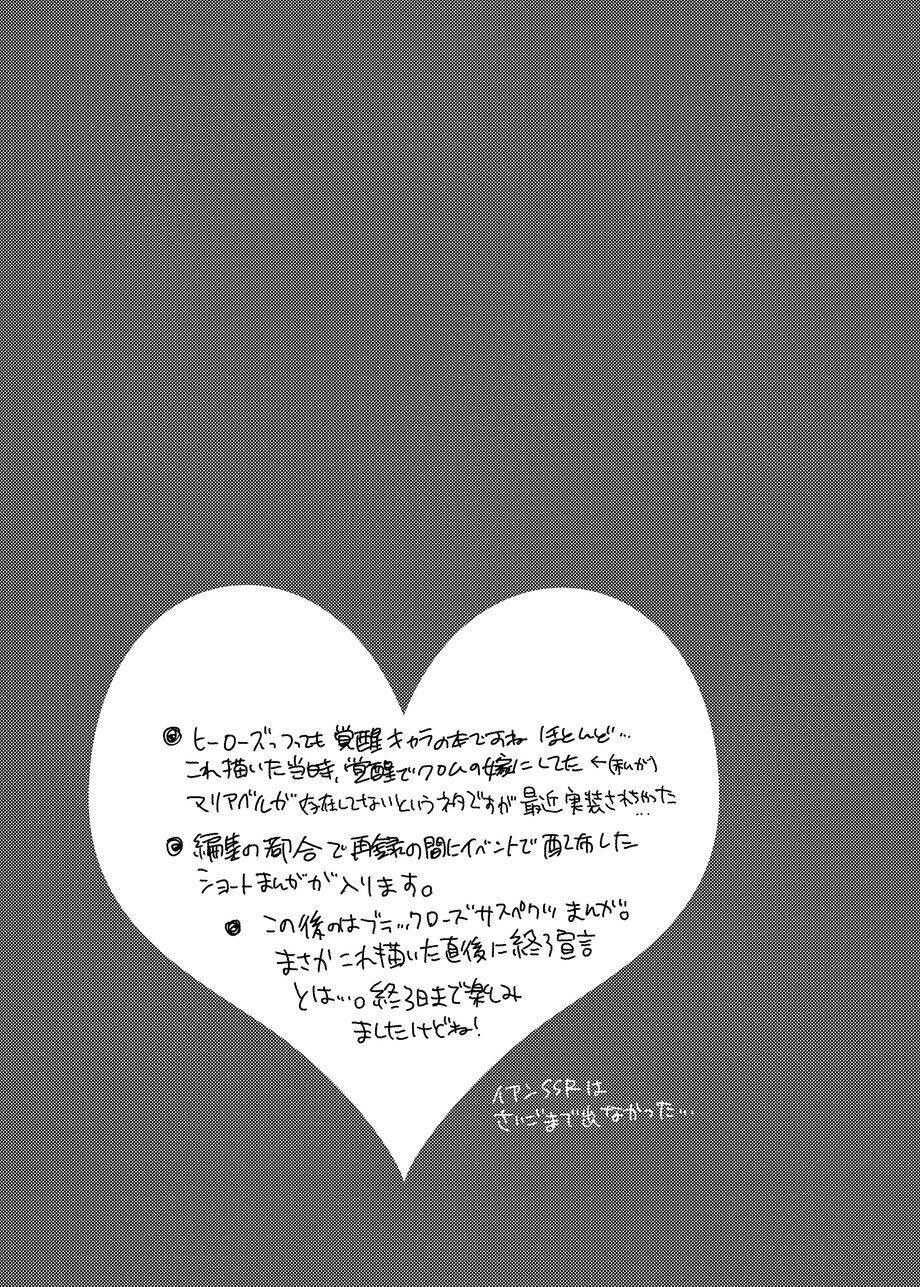 ◎ ヒーローズっつっても覚醒キャラの本ですね ほとんど…
これ描いた当時、覚醒でクロムの嫁にしてた ←(私が)
マリアベルが存在してないというネタですが最近実装されちゃった…
◎ 編集の都合で再録の間にイベントで配布した
ショートまんがが入ります。
◎ この後のはブラックローズサスペクツまんが。
まさかこれ描いた直後に終了宣言
とは…。終了日まで楽しみ
ましたけどね!
イアンSSRは
さいごまで出なかった…